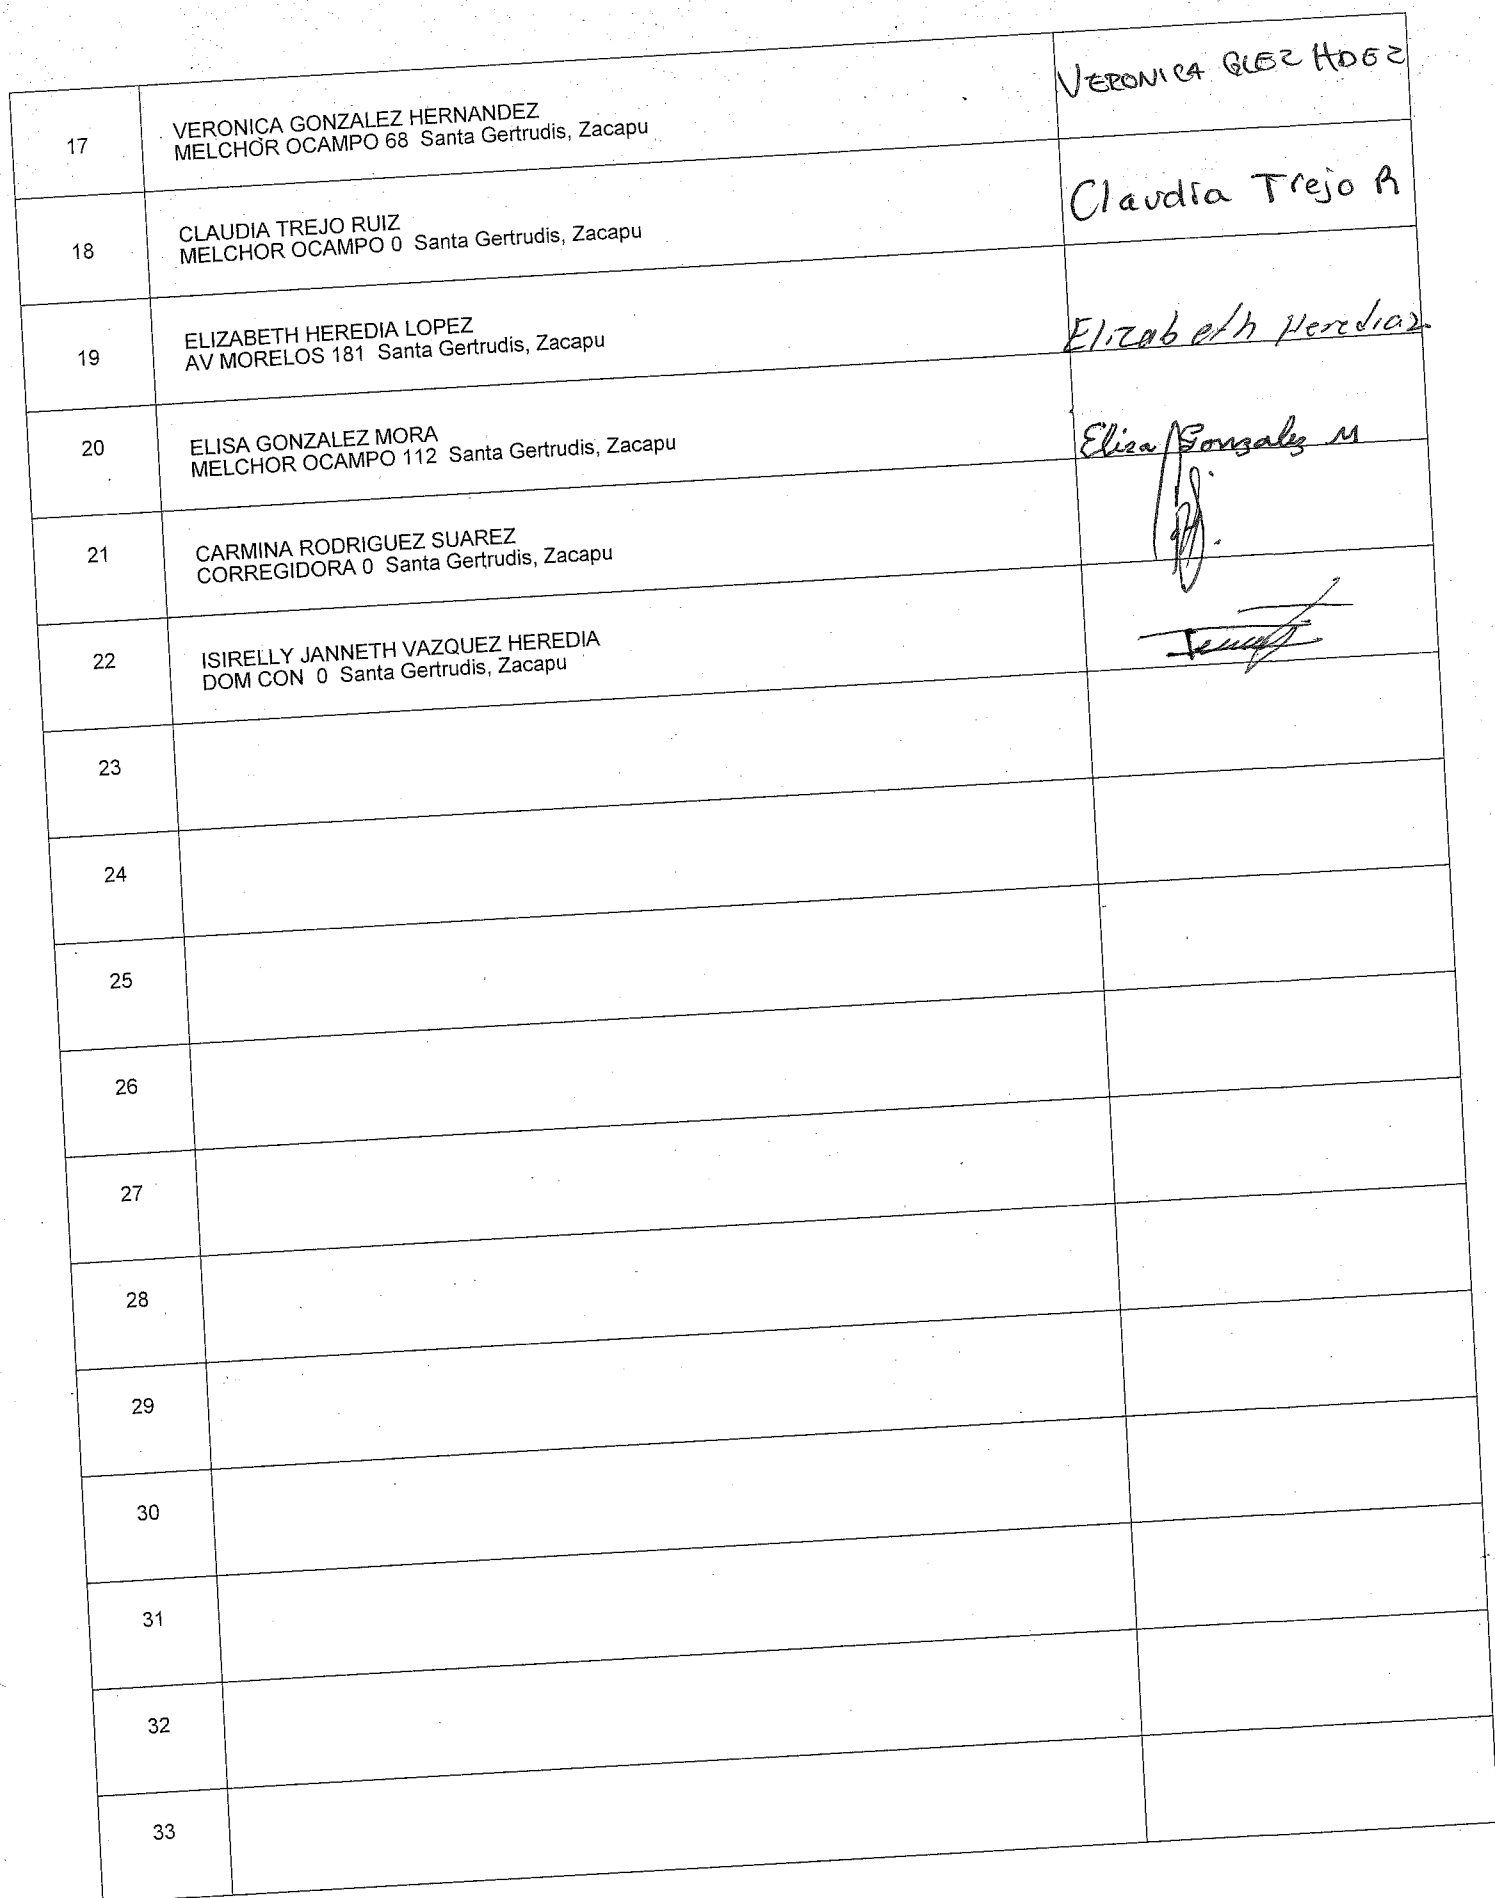 VERONICA GLEZ HDEZ
17
VERONICA GONZALEZ HERNANDEZ
MELCHOR OCAMPO 68 Santa Gertrudis, Zacapu
Claudia Trejo R
18
CLAUDIA TREJO RUIZ
MELCHOR OCAMPO 0 Santa Gertrudis, Zacapu
Elizabeth Heredia
19
ELIZABETH HEREDIA LOPEZ
AV MORELOS 181 Santa Gertrudis, Zacapu
20
ELISA GONZALEZ MORA
MELCHOR OCAMPO 112 Santa Gertrudis, Zacapu
Elisa Gonzalez M
21
CARMINA RODRIGUEZ SUAREZ
CORREGIDORA 0 Santa Gertrudis, Zacapu
22
ISIRELLY JANNETH VAZQUEZ HEREDIA
DOM CON 0 Santa Gertrudis, Zacapu
23
24
25
26
27
28
29
30
31
32
33